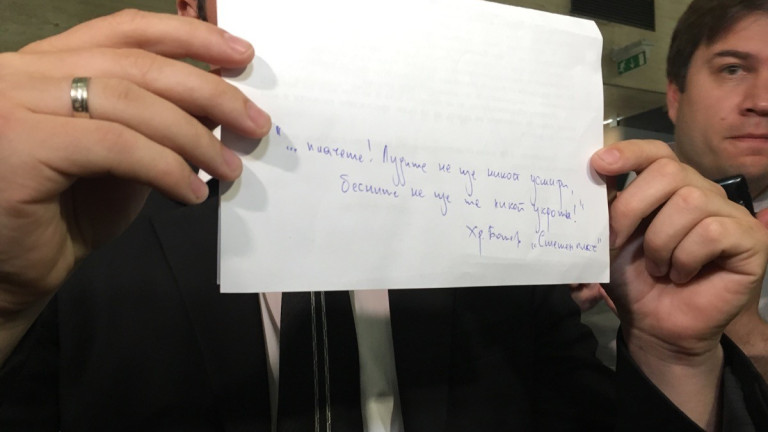 "... плачете! Лудите не ще никой усмири,
бесните не ще те никой укроти!"
Хр. Ботев „Смешен плач"